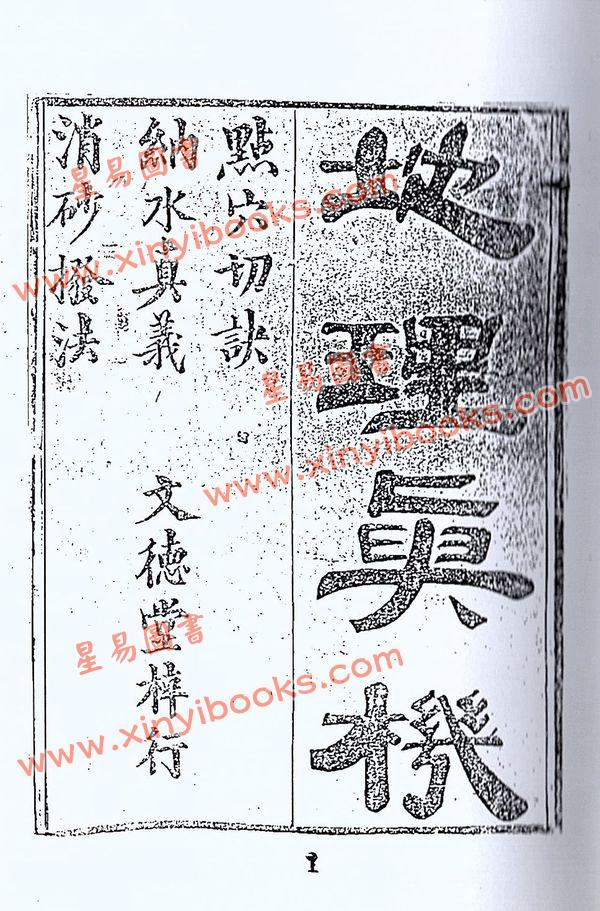 地理眞機
點穴切訣
納水真義
文德堂梓行
消砂撥法
星易圖書
www.xinyibooks.com
星易圖書
www.xinyibooks.com
星易圖書
www.xinyibooks.com
1